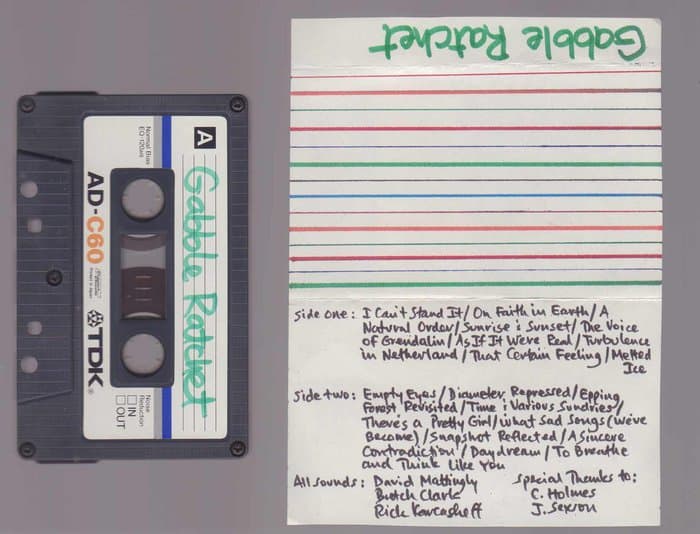 A
Normal Bias
EQ 120μs
Gabble Ratchet
AD-C60
Printed in Japan
TDK
Noise
Reduction
IN
OUT
Gabble Ratchet
side one: I Can't Stand It/On Faith in Earth/A
Natural Order/Sunrise: Sunset/The Voice
of Grendalin/As If It Were Real/Turbulence
in Netherland/That Certain Feeling/Melted
Ice
side two: Empty Eyes/Diameter Repressed/Epping
Forest Revisited/Time: Various Sundries/
There's a Pretty Girl/What Sad Songs (We've
Become)/Snapshot Reflected/A Sincere
Contradiction/Daydream/To Breathe
and Think Like You
All sounds: David Mattingly
Butch Clark
Rick
special Thanks to:
C. Holmes
J. Sexton